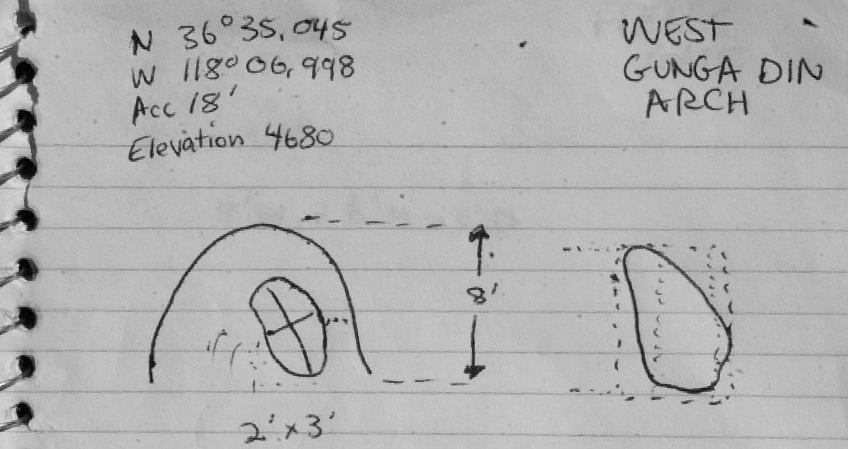 N 36° 35.045
W 118° 06.998
Acc 18'
Elevation 4680
WEST
GUNGA DIN
ARCH
8'
2' x 3'